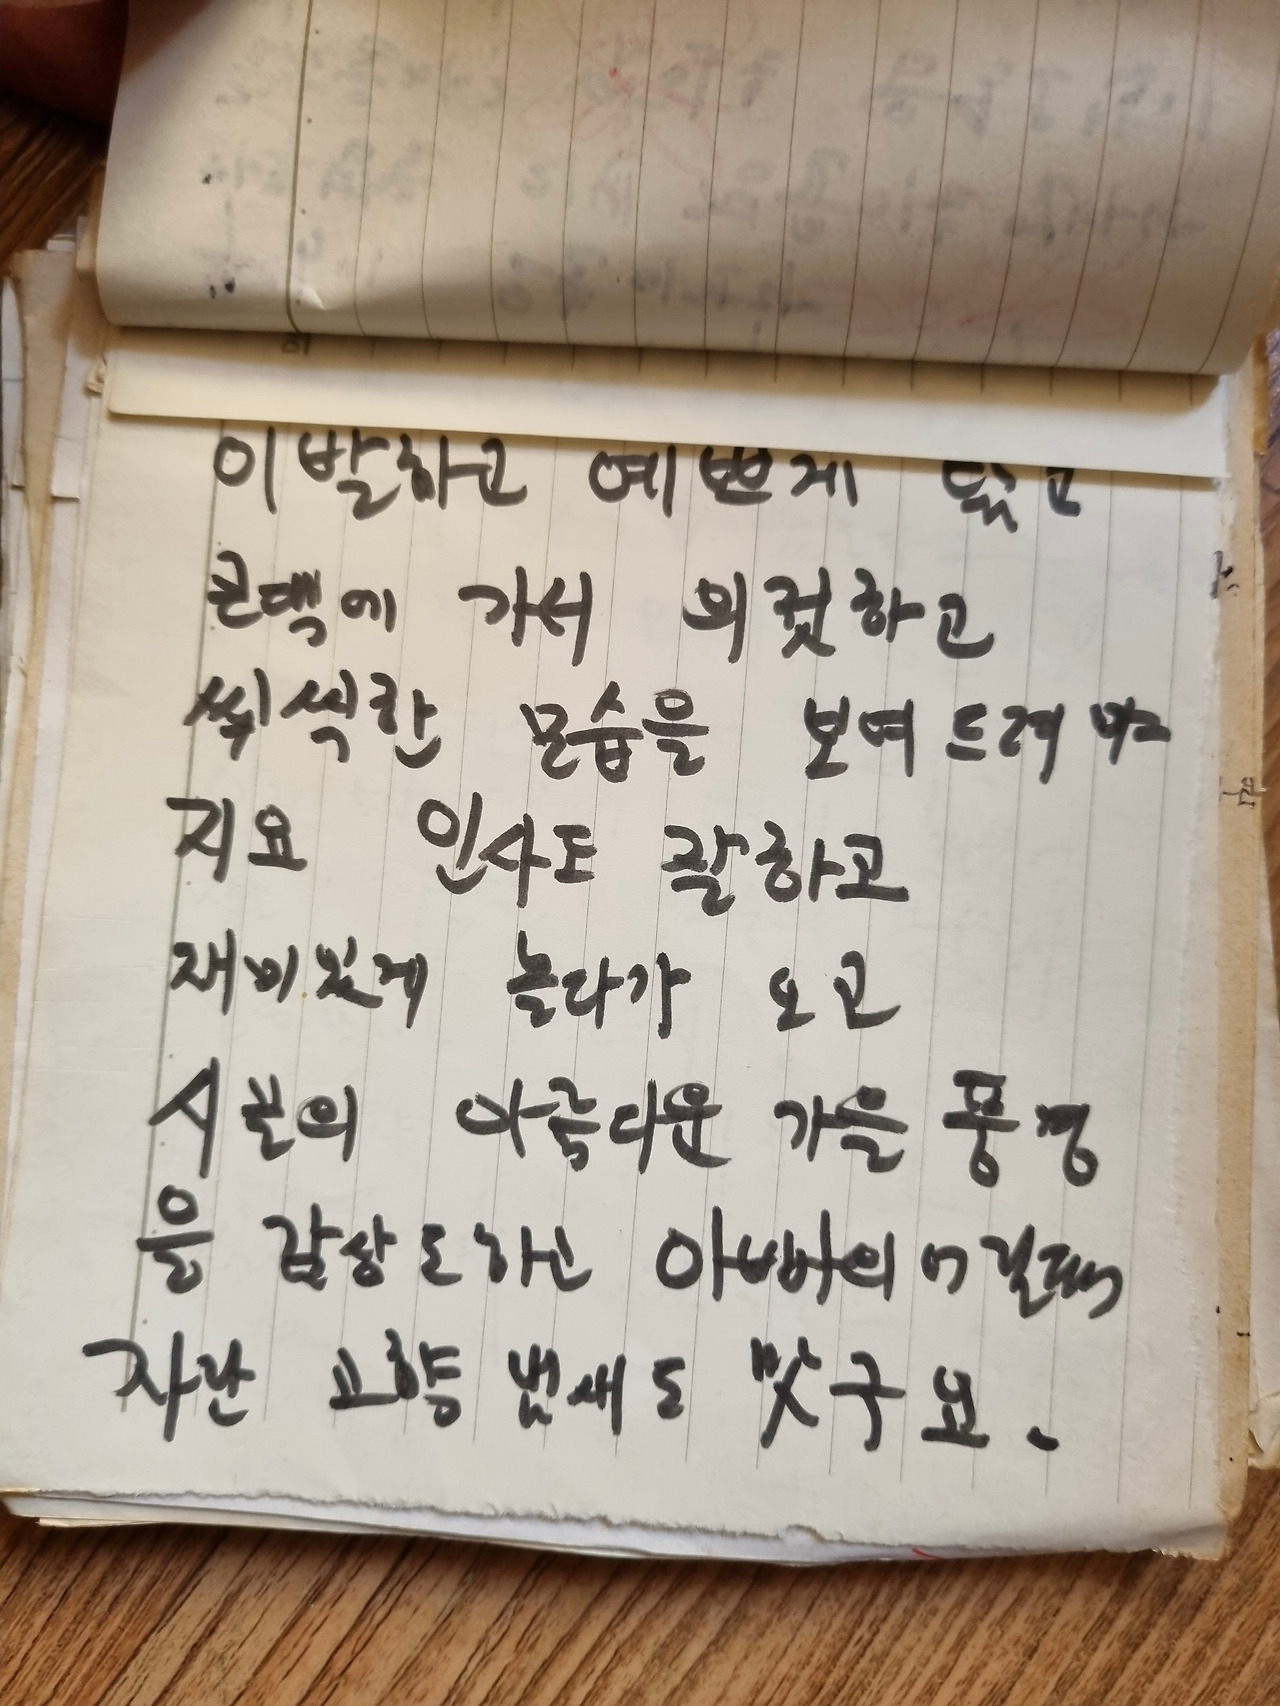 이발하고 예쁘게
큰댁에 가서 의젓하고
씩씩한 모습을 보여드려야
지요 인사도 잘하고
재미있게 놀다가 오고
시골의 아름다운 가을 풍경
을 감상도하고 아빠의 어릴때
자란 고향 냄새도 맡구요.